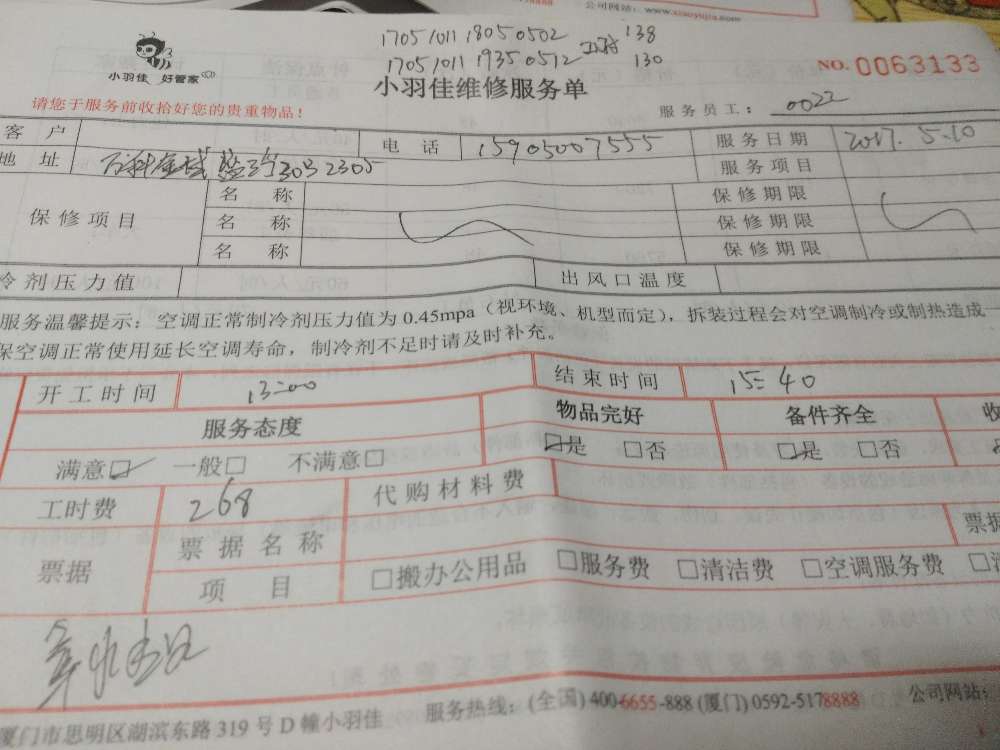 公司网站：www.xiaoyujia.com
17051011 18050502 工时 138
17051011 19350512 130
小羽佳 好管家
小羽佳维修服务单
NO.0063133
请您于服务前收拾好您的贵重物品！
服务员工： 0022
客 户 电 话 15905007555 服务日期 2017.5.10
地 址 30号2305 服务项目
保修项目 名 称 保修期限
名 称 保修期限
名 称 保修期限
冷剂压力值 出风口温度
服务温馨提示：空调正常制冷剂压力值为 0.45mpa（视环境、机型而定），拆装过程会对空调制冷或制热造成一
保空调正常使用延长空调寿命，制冷剂不足时请及时补充。
开工时间 13:00 结束时间 15:40
服务态度 物品完好 备件齐全 收
满意□ 一般□ 不满意□ □是 □否 □是 □否
工时费 268 代购材料费
票据 票据名称 票据
项 目 □搬办公用品 □服务费 □清洁费 □空调服务费
厦门市思明区湖滨东路 319 号 D 幢小羽佳 服务热线：(全国) 400-6655-888 (厦门) 0592-5178888 公司网站：